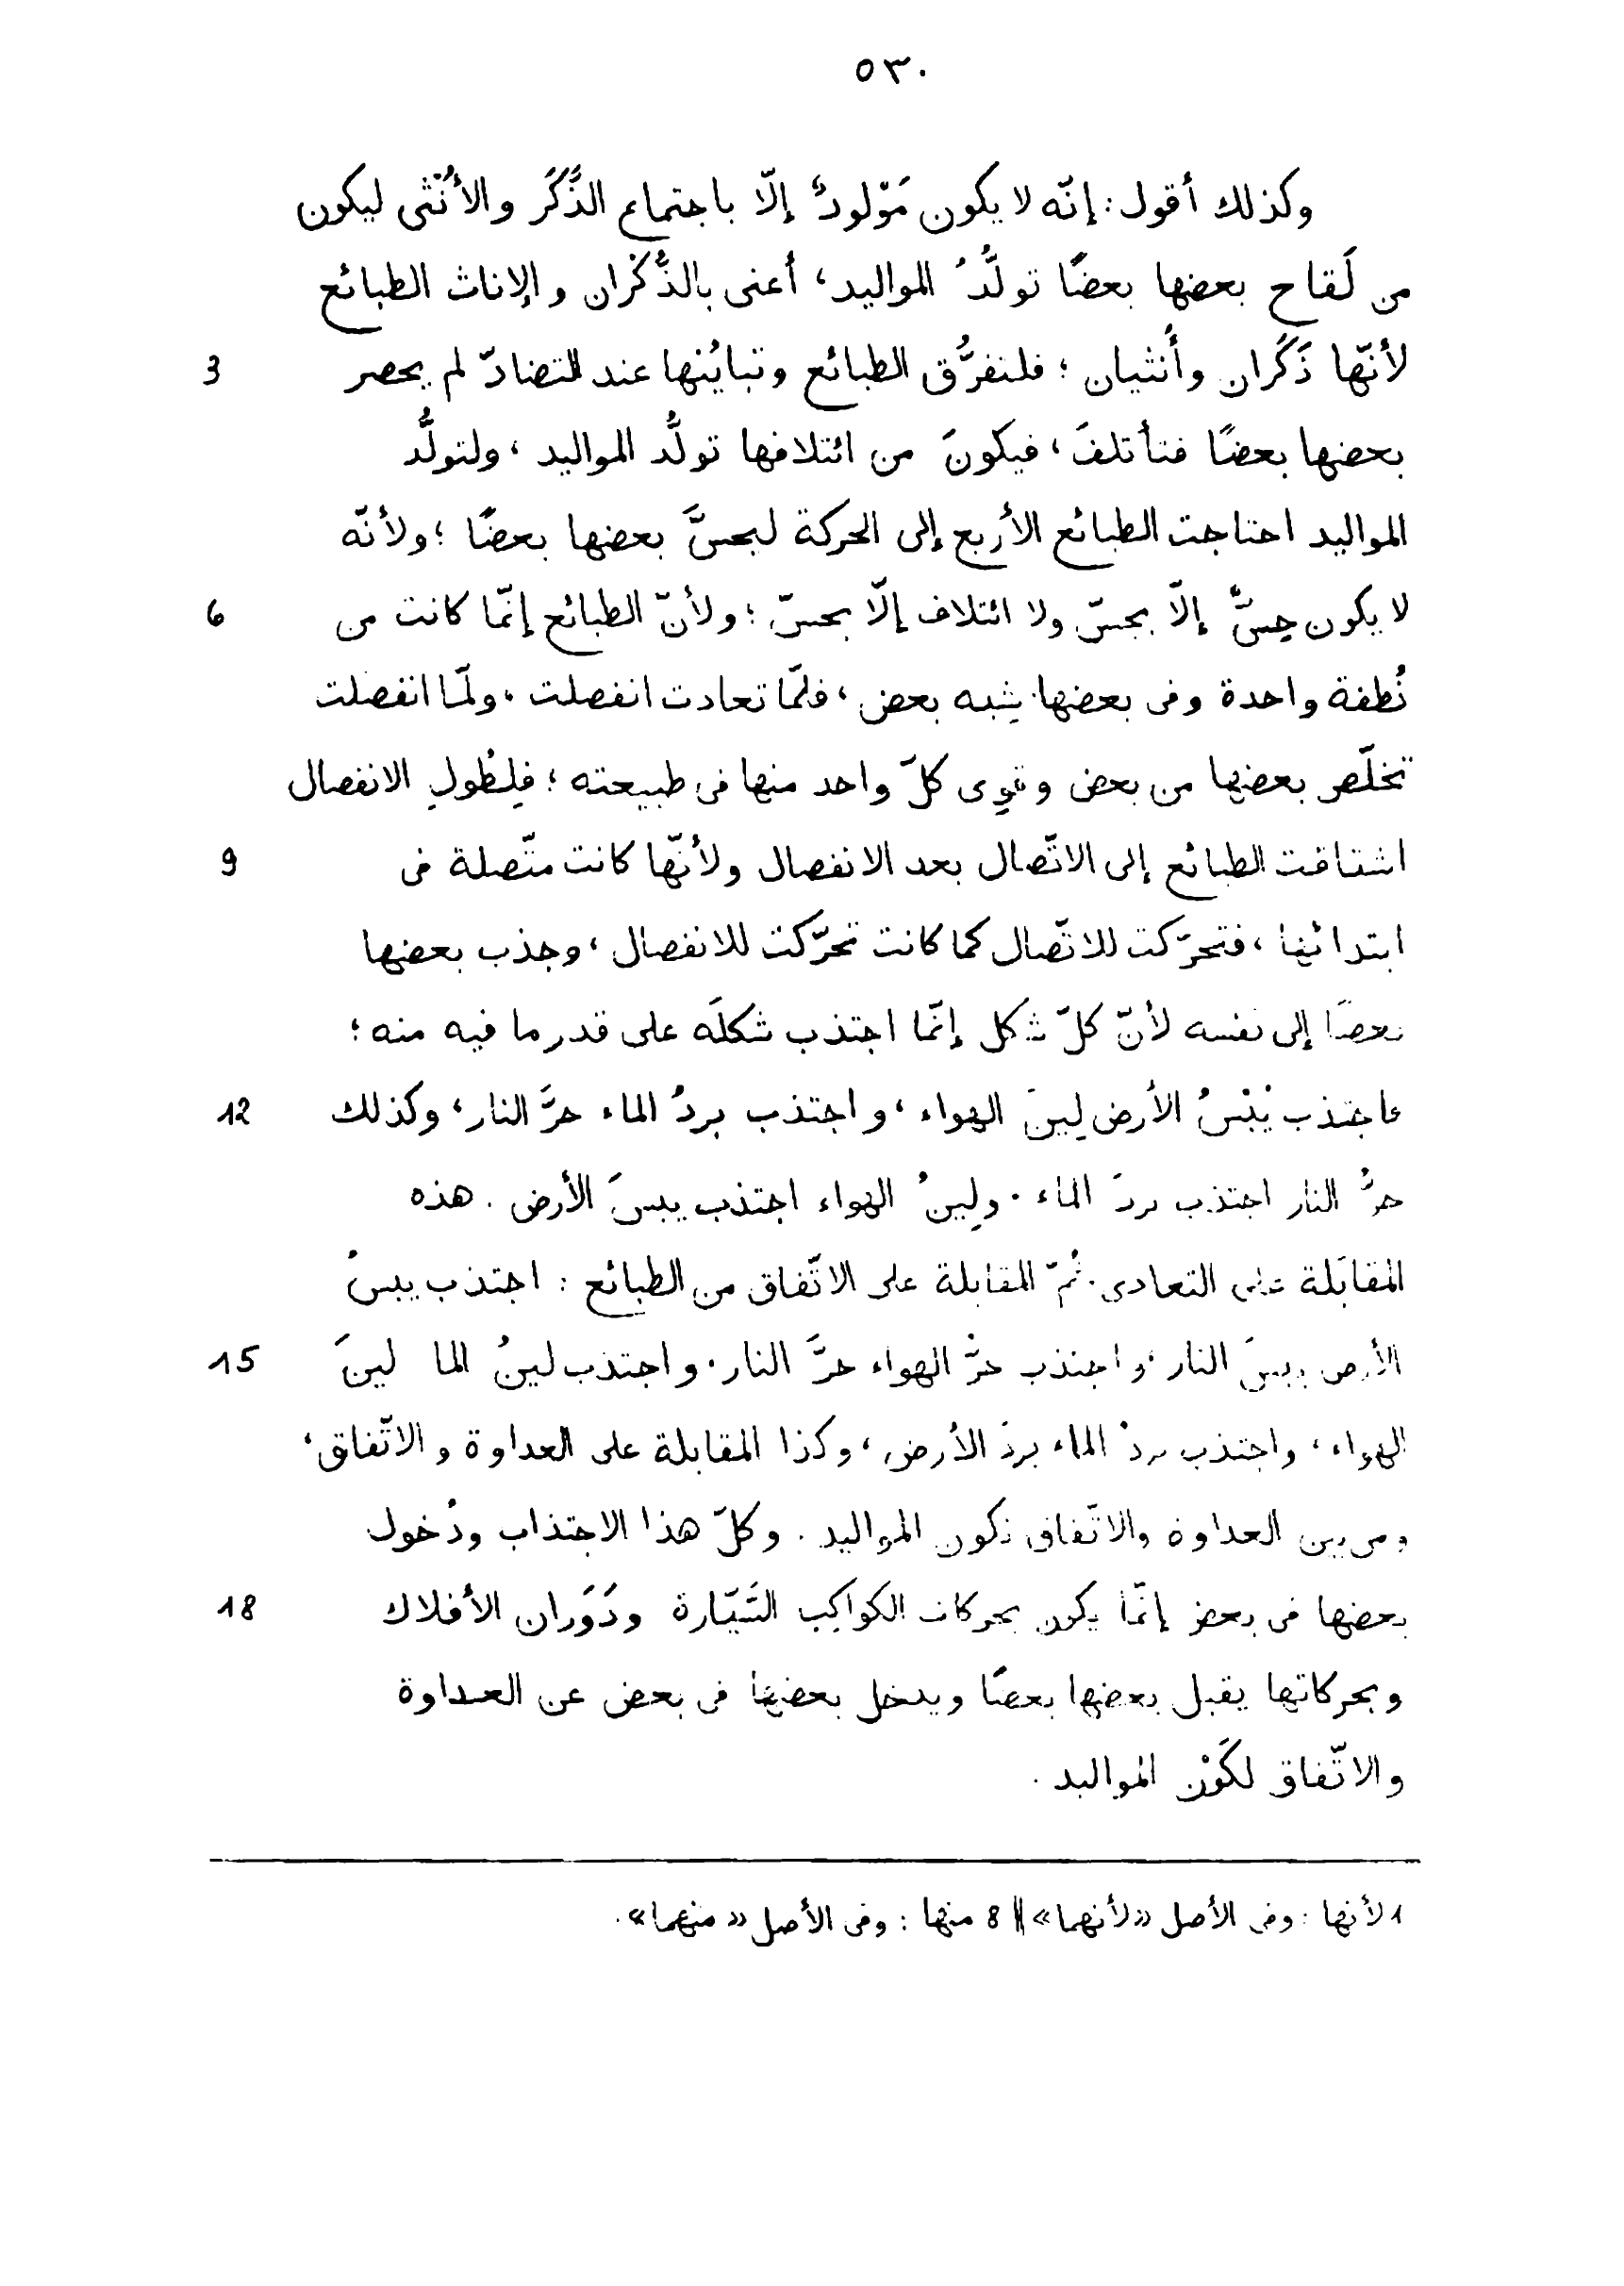 ٥٣٠
وكذلك أقول : إنّه لا يكون مَوْلودٌ إلّا باجتماع الذَّكَر والأُنْثى ليكون
من لَقاح بعضها بعضًا تولُّدُ المواليد ، أعنى بالذُّكْران والإناث الطبائع
لأنّها ذَكَران وأُنثيان ؛ فلتفرُّق الطبائع وتبايُنها عند التضادّ لم يحصر 3
بعضها بعضًا فتأتلفَ ، فيكونَ من ائتلافها تولُّد المواليد ، ولتولُّد
المواليد احتاجت الطبائع الأربع إلى الحركة ليجسَّ بعضها بعضًا ؛ ولأنّه
لا يكون حِسٌّ إلّا بجسّ ولا ائتلاف إلّا بحسّ ؛ ولأنّ الطبائع إنّما كانت من 6
نُطفة واحدة وفى بعضها شِبه بعض ، فلمّا تعادت انفصلت ، ولمّا انفصلت
تخلّص بعضها من بعض وقوِى كلّ واحد منها فى طبيعته ؛ فلِطُولِ الانفصال
اشتاقت الطبائع إلى الاتّصال بعد الانفصال ولأنّها كانت متّصلة فى 9
ابتدائها ، فتحرّكت للاتّصال كما كانت تحرّكت للانفصال ، وجذب بعضها
بعضًا إلى نفسه لأنّ كلّ شكل إنّما اجتذب شكلَه على قدر ما فيه منه ؛
فاجتذب يُبْسُ الأرض لِينَ الهواء ، واجتذب بردُ الماء حرَّ النار ، وكذلك 12
حرُّ النار اجتذب بردَ الماء ، ولِينُ الهواء اجتذب يبسَ الأرض . هذه
المقابَلة على التعادى . ثُمّ المقابلة على الاتّفاق من الطبائع : اجتذب يبسُ
الأرض يبسَ النار ، واجتذب حرُّ الهواء حرَّ النار ، واجتذب لينُ الما لينَ 15
الهواء ، واجتذب بردُ الماء بردَ الأرض ، وكذا المقابلة على العداوة والاتّفاق ،
ومن بين العداوة والاتّفاق تكون المواليد . وكلّ هذا الاجتذاب ودُخول
بعضها فى بعض إنّما يكون بحركات الكواكِب السَّيّارة ودَوَران الأفلاك 18
وبحركاتها يقبل بعضها بعضًا ويدخل بعضها فى بعض عن العداوة
والاتّفاق لكَوْن المواليد .
1 لأنها : وفى الأصل «لأنهما» || 8 منها : وفى الأصل «منهما».